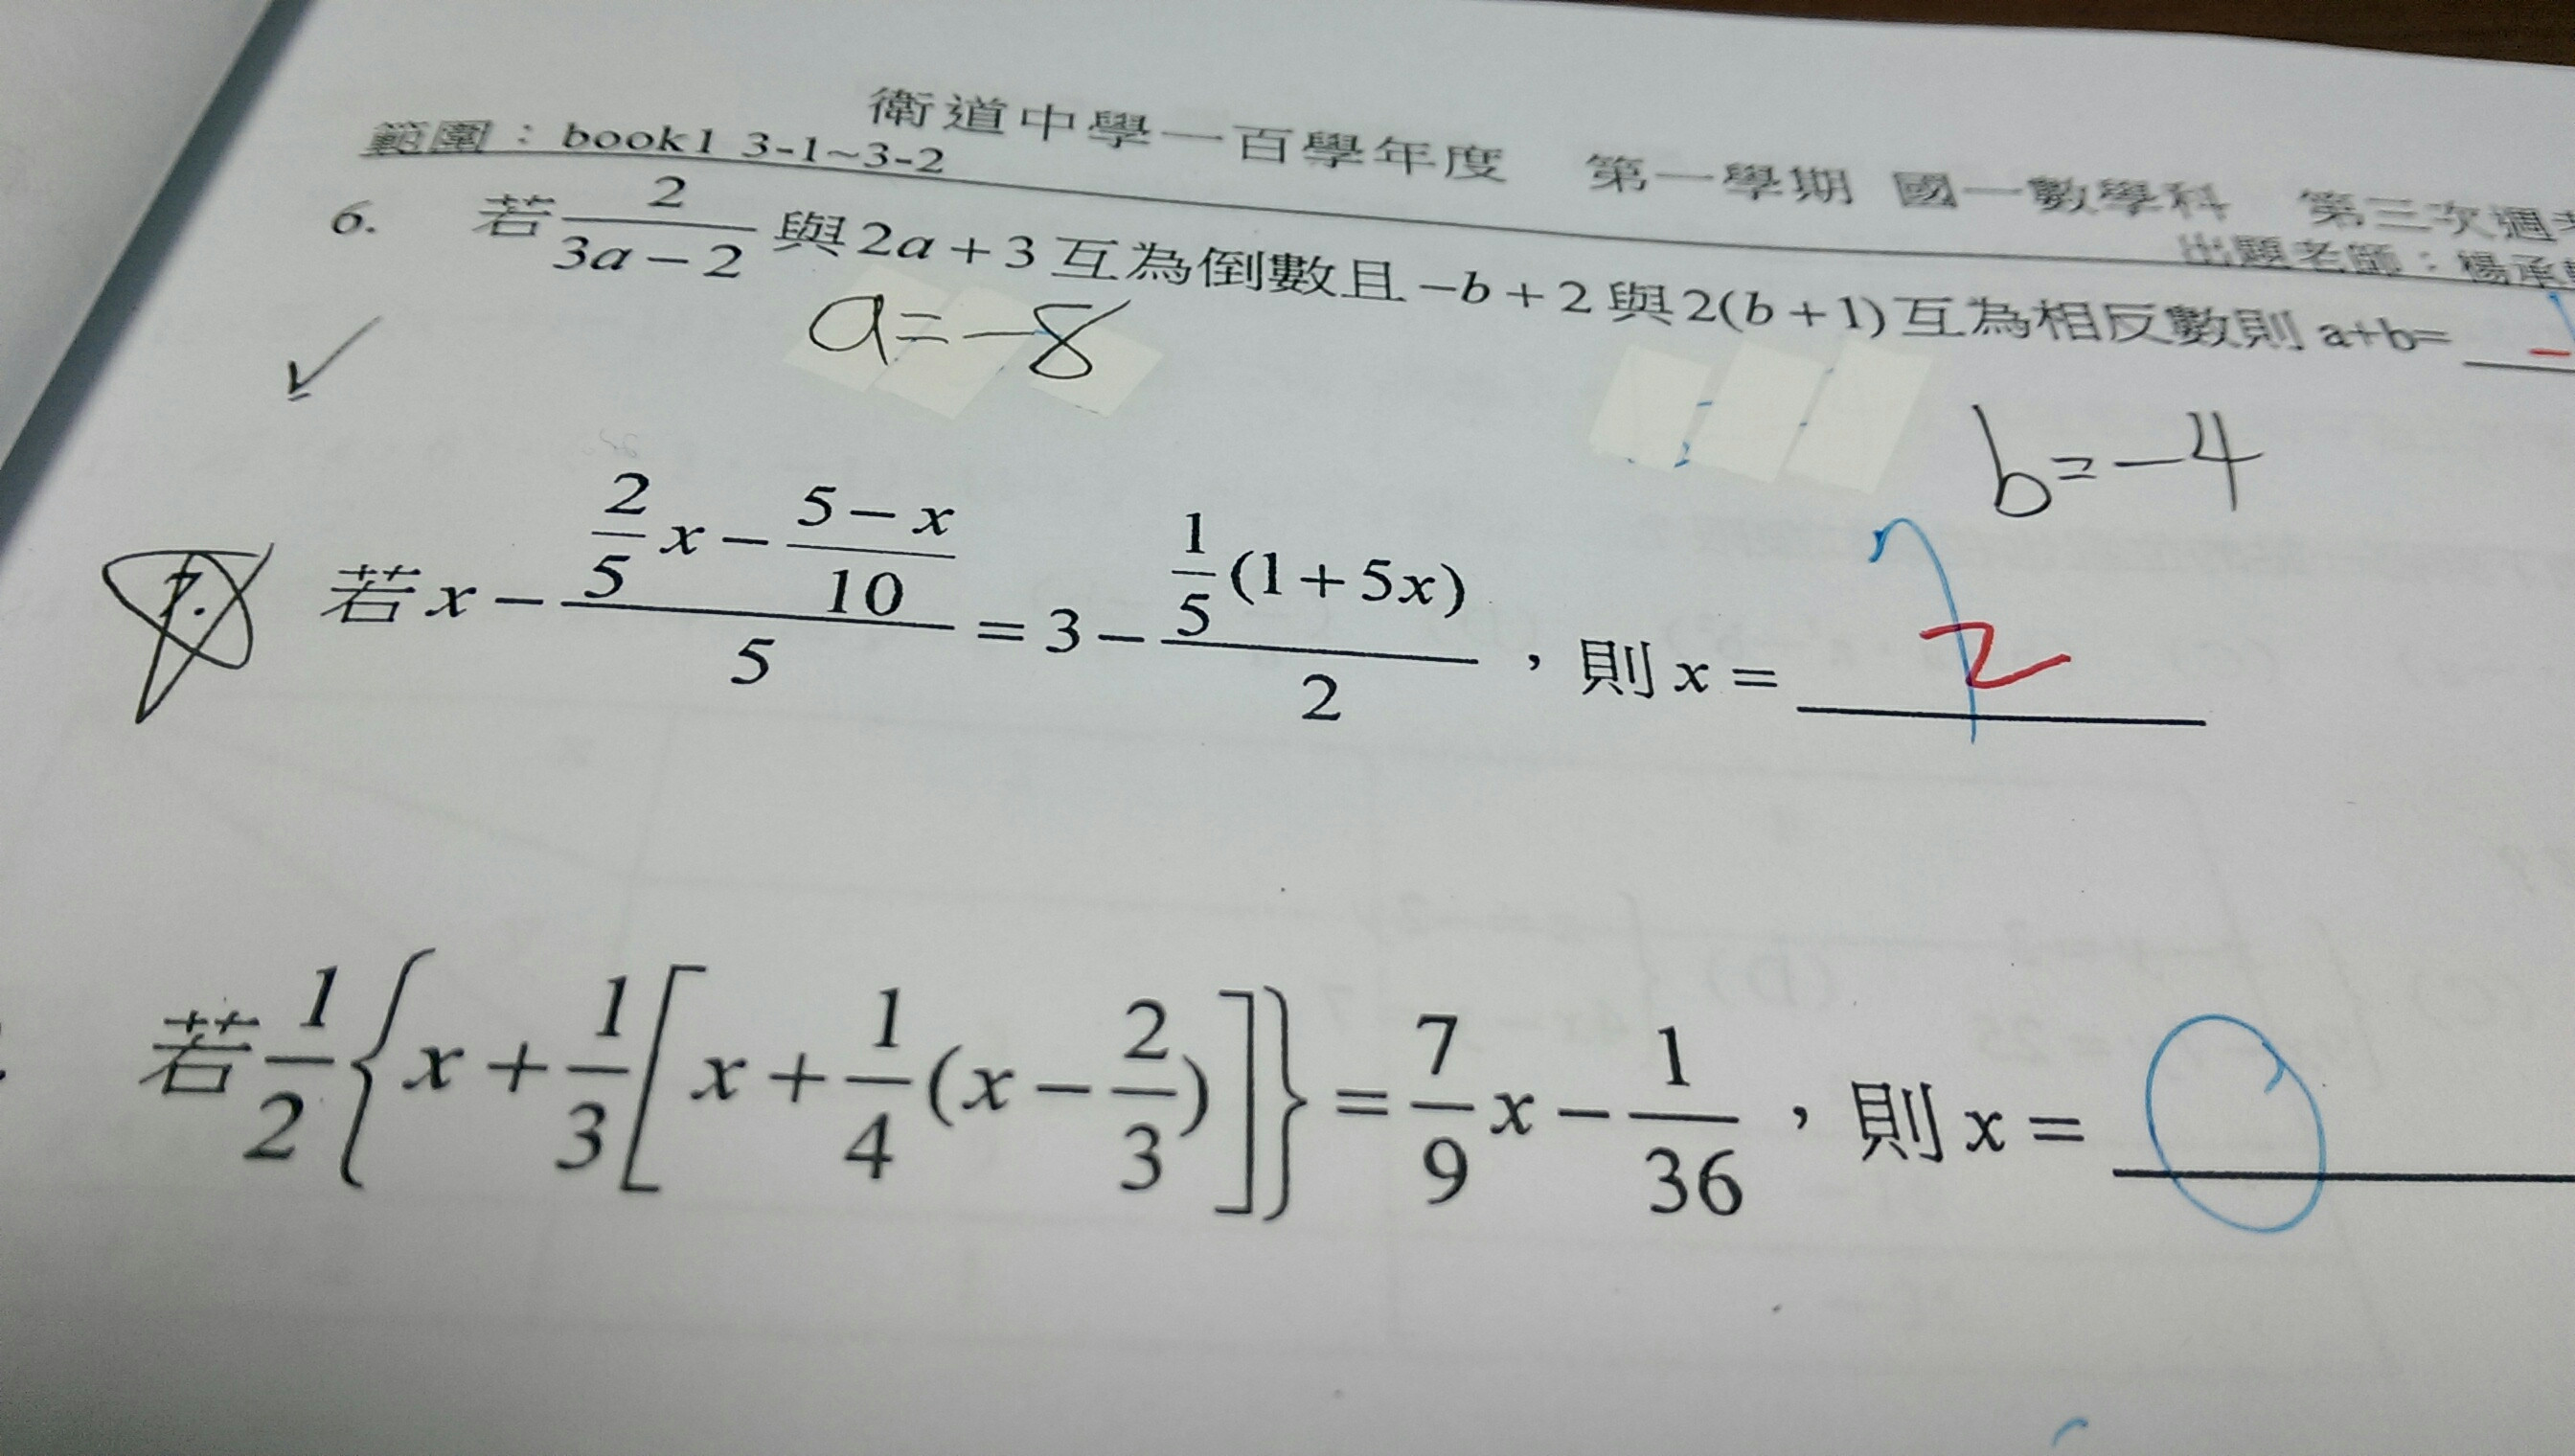 衛道中學一百學年度 第一學期 國一數學科 第三次週
範圍：book1 3-1~3-2
出題老師：楊承
6. 若 2/(3a-2) 與 2a+3 互為倒數且 -b+2 與 2(b+1) 互為相反數則 a+b=
a=-8
b=-4
7. 若 x - (2/5 x - (5-x)/10)/5 = 3 - (1/5(1+5x))/2，則 x = 2
若 1/2{x + 1/3[x + 1/4(x - 2/3)]} = 7/9 x - 1/36，則 x =